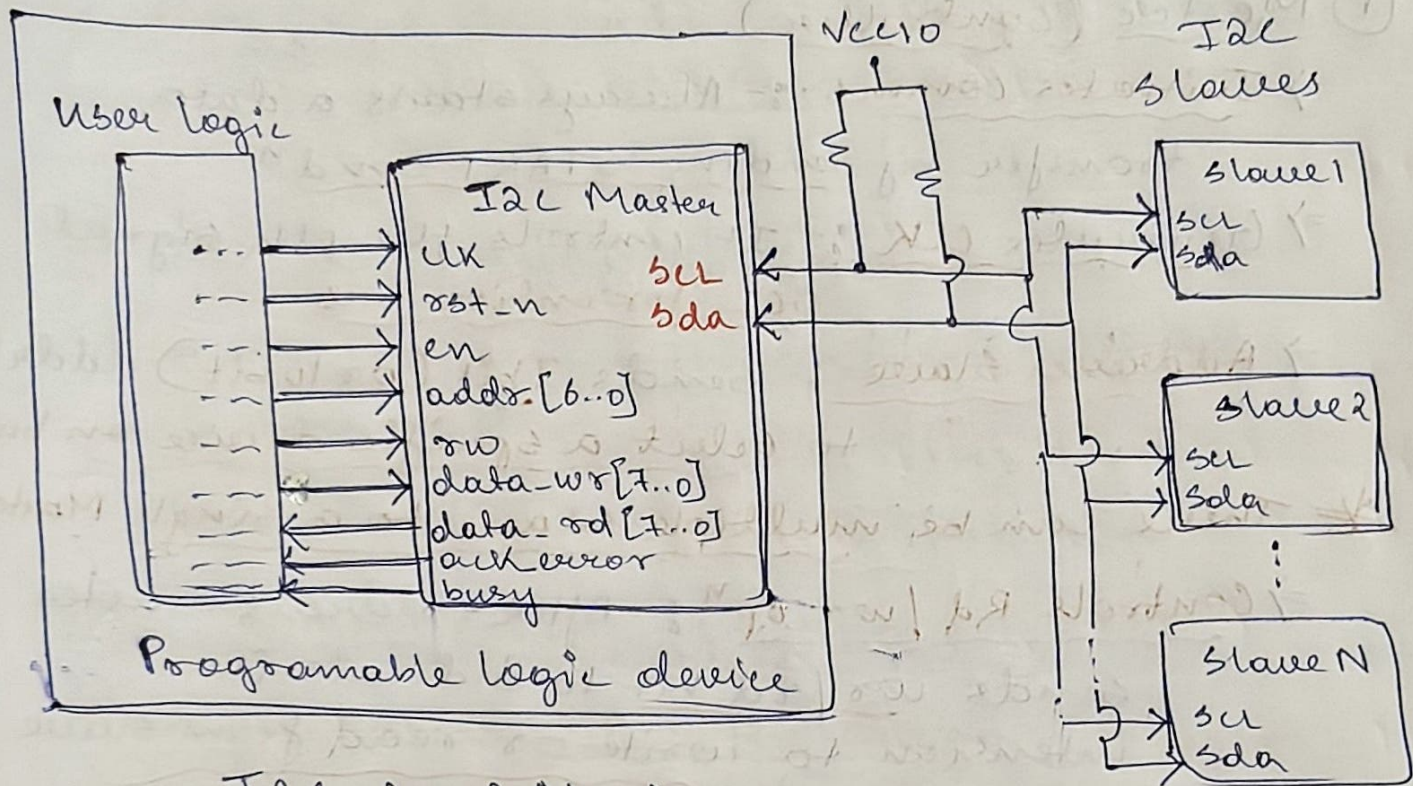 VCCIO
I2C
slaves
User logic
I2C Master
clk
rst_n
en
addr.[6..0]
rw
data_wr[7..0]
data_rd[7..0]
ack_error
busy
scl
sda
Programable logic device
Slave1
scl
sda
Slave2
scl
sda
Slave N
scl
sda